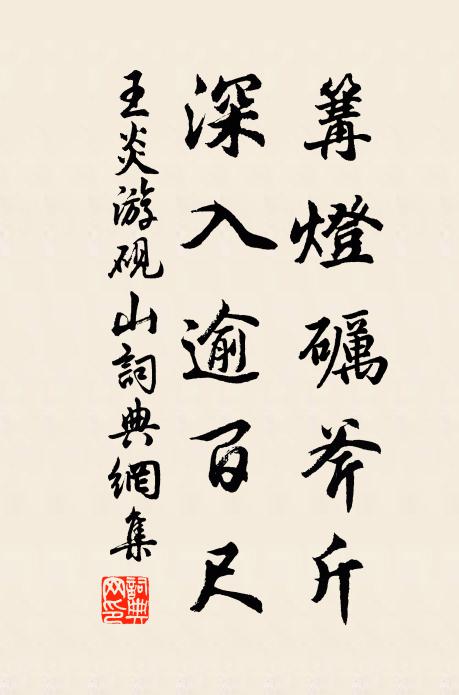 篝燈礪斧斤
深入逾百尺
王炎游砚山詞典網集
詞典網印